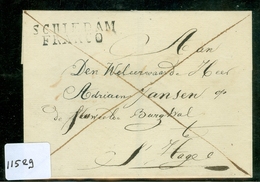 SCHIEDAM
FRANCO
Aan
Den Weleerwaarde Heer
Adriaan Jansen op
de Burgwal
S' Hage
11529